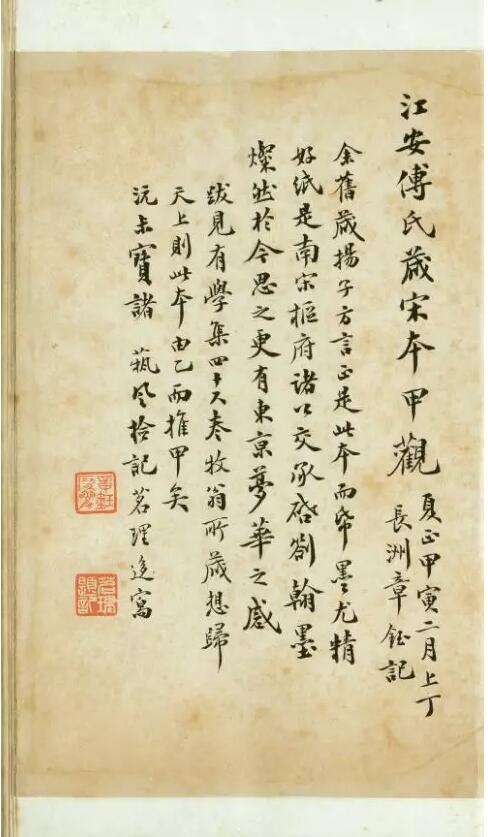 江安傅氏藏宋本甲觀
夏正甲寅二月上丁
長洲章鈺記
余舊藏揚子方言正是此本而帋墨尤精
好紙是南宋樞府諸公交承啓劄翰墨
燦然於今思之更有東京夢華之感
跋見有學集四十六卷牧翁所藏想歸
天上則此本由乙而推甲矣
沅未寶諸 蓺風拾記茗理迻寫
茗理題記